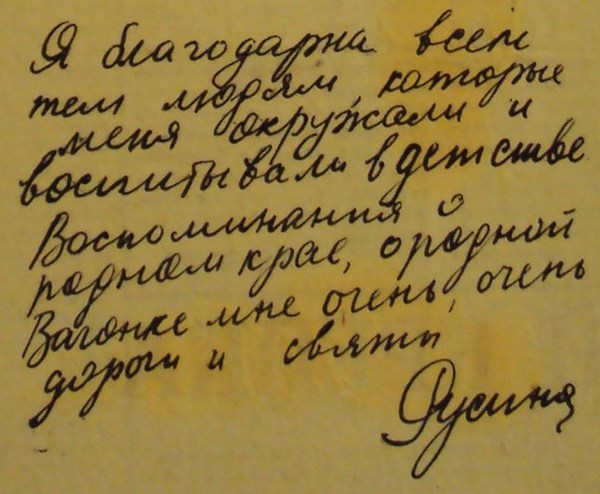 Я благодарна всем
тем людям, которые
меня окружали и
воспитывали в детстве
Воспоминания о
родном крае, о родной
Вагонке мне очень, очень
дороги и святы
Русина